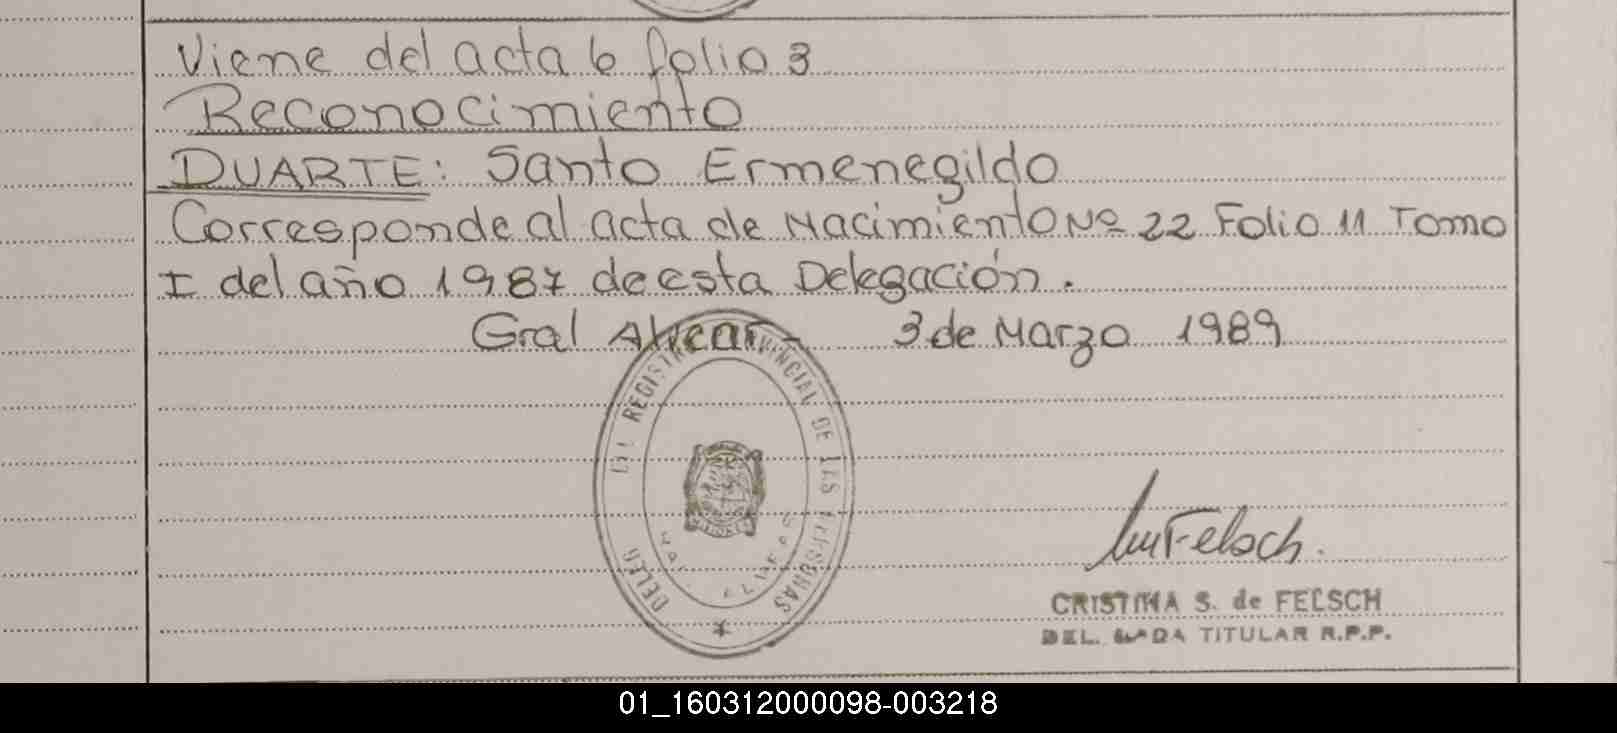 Viene del acta 6 folio 3
Reconocimiento
DUARTE: Santo Ermenegildo
Corresponde al acta de Nacimiento Nº 22 Folio 11 Tomo
I del año 1987 de esta Delegación.
Gral Alvear - 3 de Marzo 1989
DELEG DEL REGISTRO PROVINCIAL DE LAS PERSONAS
CRISTINA S. de FELSCH
DELEGADA TITULAR R.P.P.
01_160312000098-003218